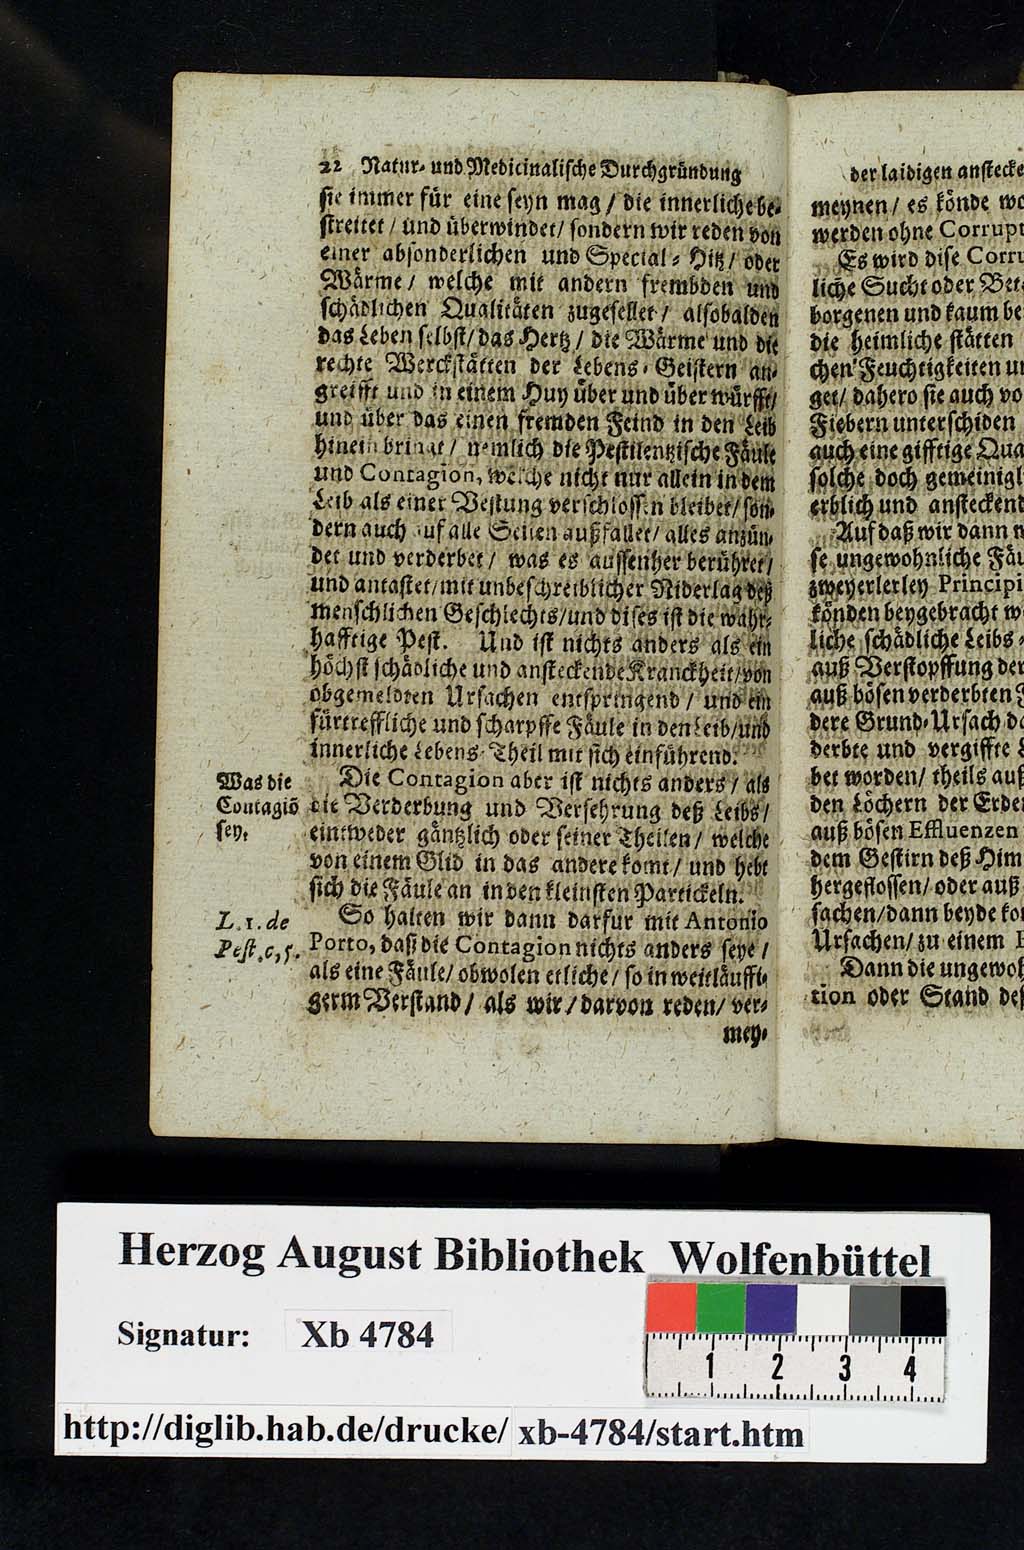 22 Natur- und Medicinalische Durchgründung
sie immer für eine seyn mag / die innerliche be-
streitet / und überwindet / sondern wir reden von
einer absonderlichen und Special-Hitz / oder
Wärme / welche mit andern frembden und
schädlichen Qualitäten zugesellet / alsobalden
das Leben selbst / das Hertz / die Wärme und die
rechte Werckstätten der Lebens-Geistern an-
greifft und in einem Huy über und über würfft /
und über das einen fremden Feind in den Leib
hinein bringt / nemlich die Pestilentzische Fäule
und Contagion, welche nicht nur allein in dem
Leib als einer Vestung verschlossen bleibet / son-
dern auch auf alle Seiten außfallet / alles anzün-
det und verderbet / was es aussenher berühret /
und antastet / mit unbeschreiblicher Niderlag deß
menschlichen Geschlechts / und dises ist die wahr-
hafftige Pest. Und ist nichts anders als ein
höchst schädliche und ansteckende Kranckheit / von
obgemeldten Ursachen entspringend / und ein
fürtreffliche und scharpffe Fäule in den Leib / und
innerliche Lebens-Theil mit sich einführend.
Was die
Contagiõ
sey.
Die Contagion aber ist nichts anders / als
die Verderbung und Versehrung deß Leibs /
eintweder gäntzlich oder seiner Theilen / welche
von einem Glid in das andere komt / und hebt
sich die Fäule an in den kleinsten Partickeln.
L. 1. de
Pest. c, 5.
So halten wir dann darfur mit Antonio
Porto, daß die Contagion nichts anders seye /
als eine Fäule / obwolen etliche / so in weitläuffi-
germ Verstand / als wir / darvon reden / ver-
mey-
der laidigen anstecke
meynen / es könde wo
werden ohne Corrupt
Es wird dise Corru
liche Sucht oder Bet
borgenen und kaum be
die heimliche stätten
chen Feuchtigkeiten u
get / dahero sie auch vo
Fiebern unterschiden
auch eine gifftige Qua
solche doch gemeinigl
erblich und ansteckend
Auf daß wir dann n
se ungewohnliche Fäu
zweyerlerley Principi
könden beygebracht w
liche schädliche Leibs-
auß Verstopffung der
auß bösen verderbten
dere Grund-Ursach da
derbte und vergiffte L
bet worden / theils auß
den Löchern der Erde
auß bösen Effluenzen
dem Gestirn deß Him
hergeflossen / oder auß
sachen / dann beyde ko
Ursachen / zu einem
Dann die ungewoh
tion oder Stand des
Herzog August Bibliothek Wolfenbüttel
Signatur: Xb 4784
1 2 3 4
http://diglib.hab.de/drucke/ xb-4784/start.htm